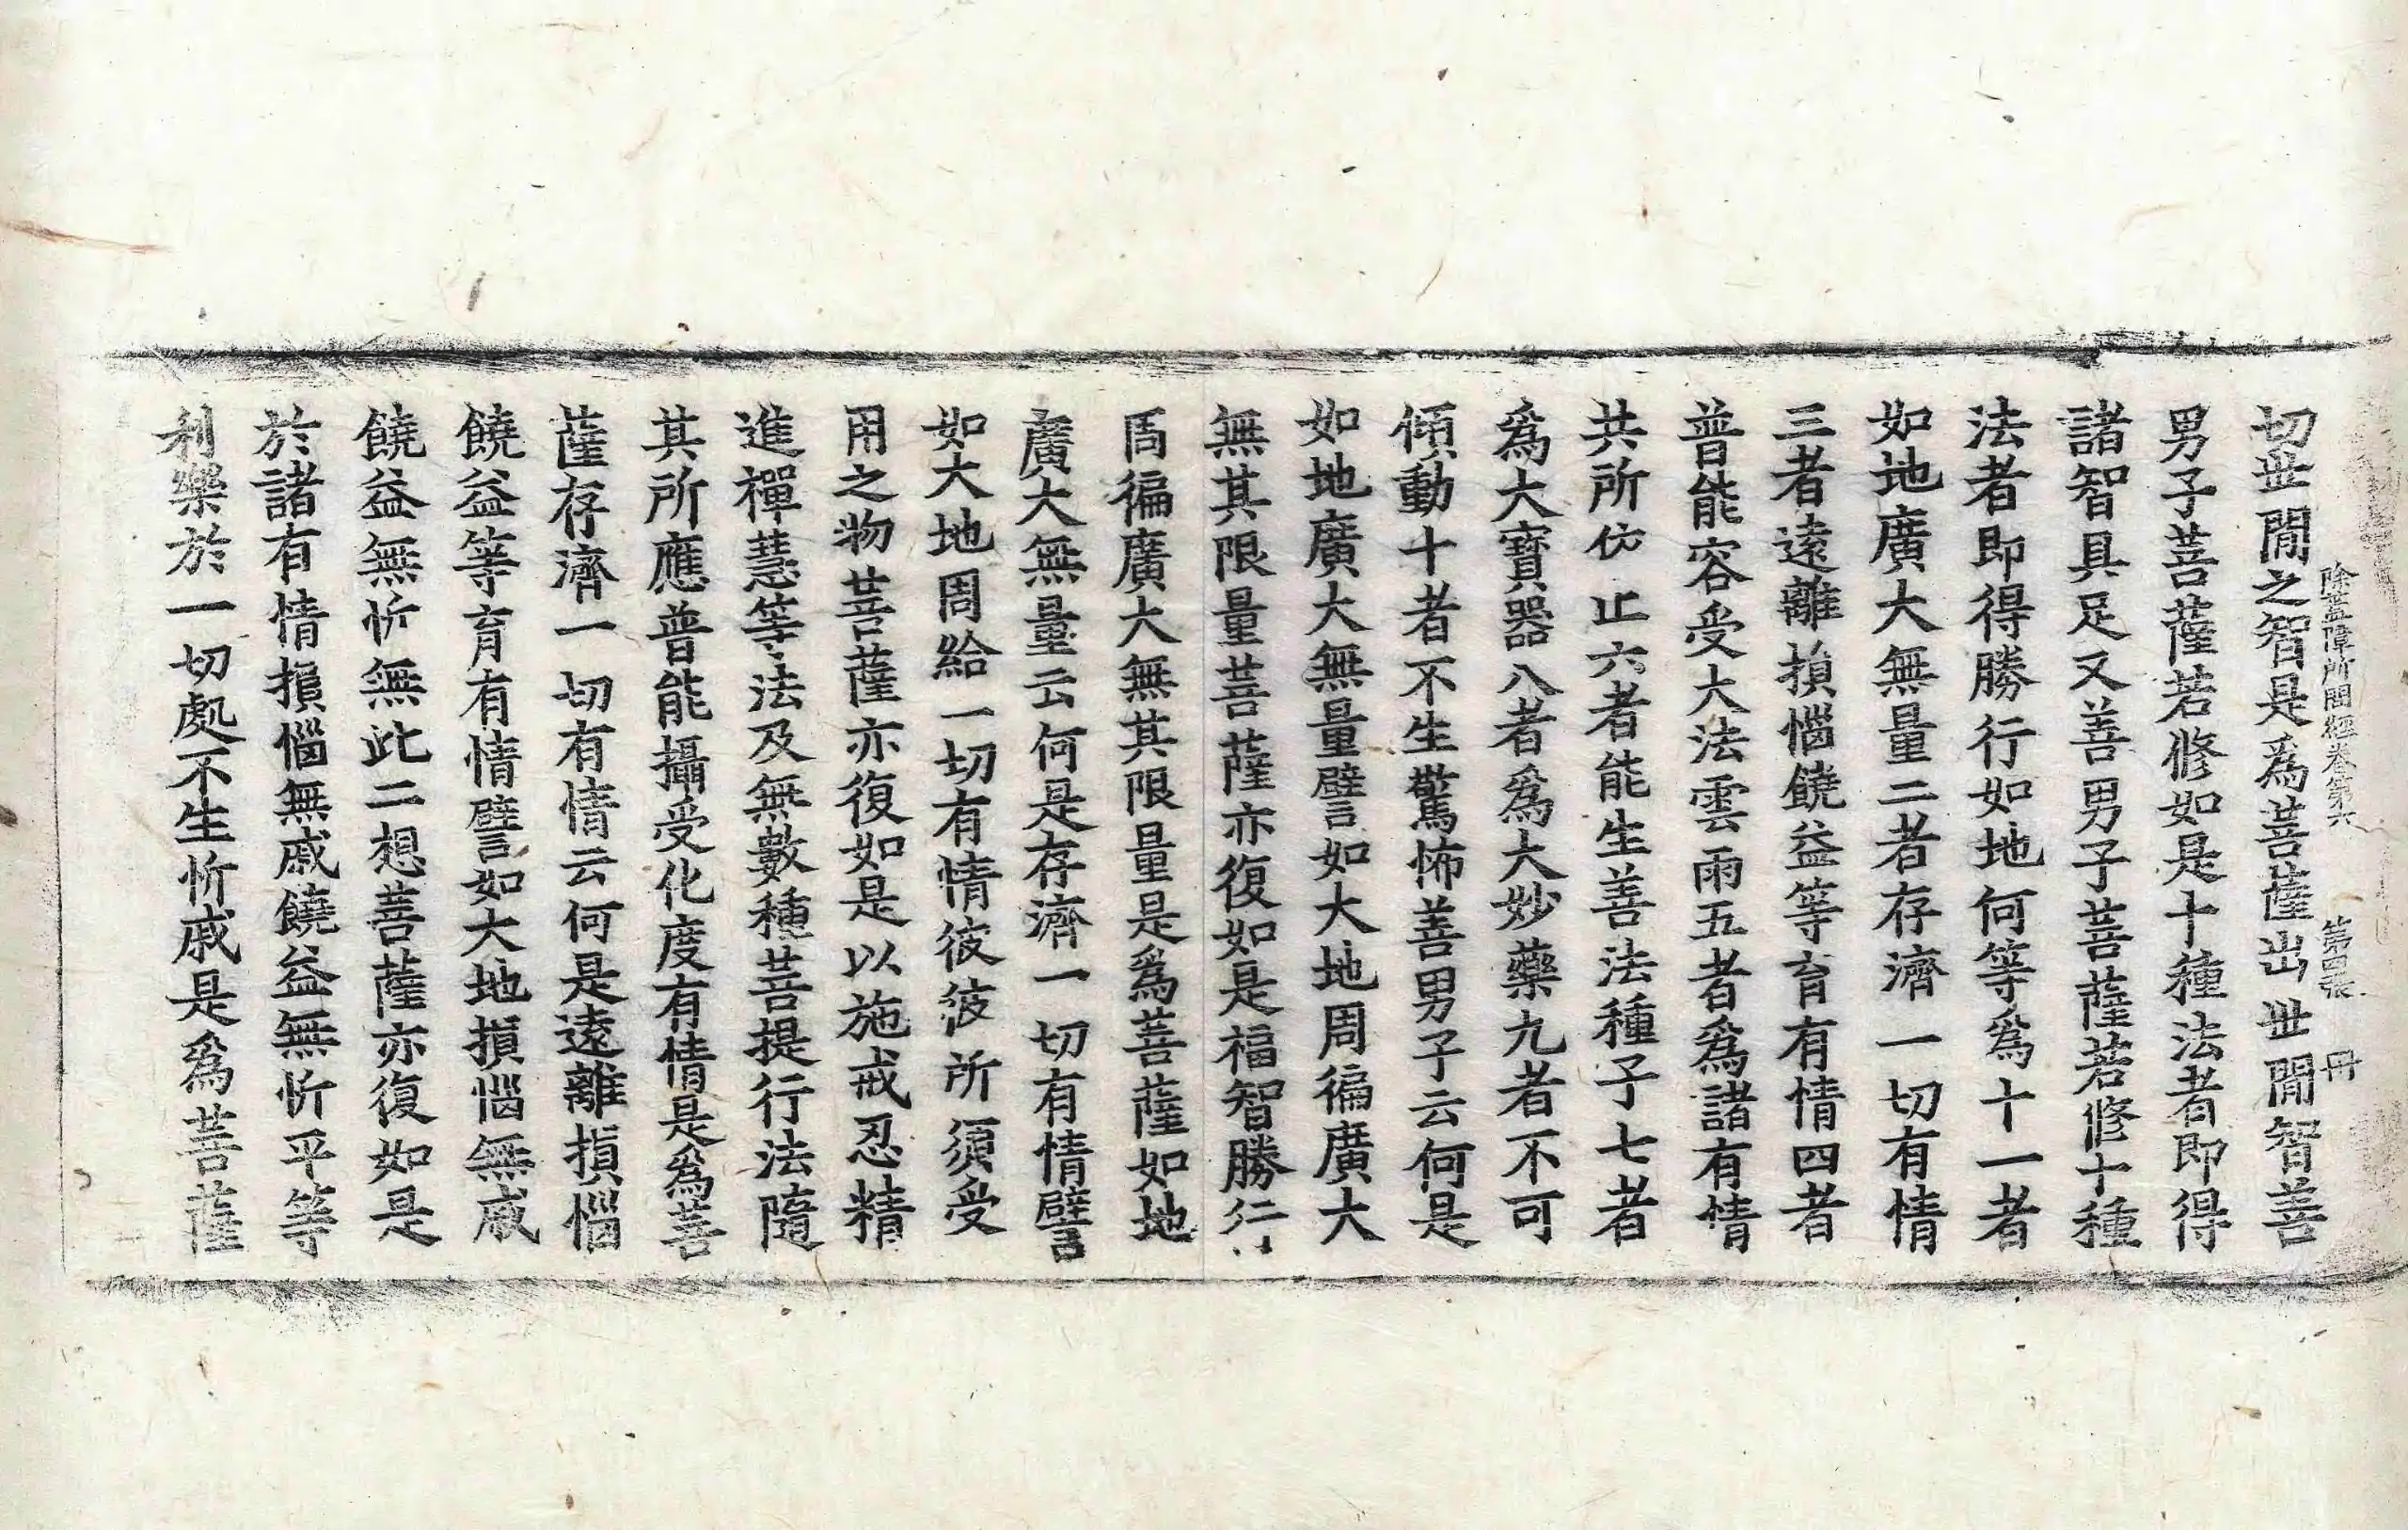 除蓋障所問經卷第六 第四張 冊
切世間之智是爲菩薩出世間智善
男子菩薩若修如是十種法者即得
諸智具足又善男子菩薩若修十種
法者即得勝行如地何等爲十一者
如地廣大無量二者存濟一切有情
三者遠離損惱饒益等育有情四者
普能容受大法雲雨五者爲諸有情
共所依止六者能生善法種子七者
爲大寶器八者爲大妙藥九者不可
傾動十者不生驚怖善男子云何是
如地廣大無量譬如大地周徧廣大
無其限量菩薩亦復如是福智勝行
周徧廣大無其限量是爲菩薩如地
廣大無量云何是存濟一切有情譬
如大地周給一切有情彼彼所須受
用之物菩薩亦復如是以施戒忍精
進禪慧等法及無數種菩提行法隨
其所應普能攝受化度有情是爲菩
薩存濟一切有情云何是遠離損惱
饒益等育有情譬如大地損惱無慼
饒益無忻無此二想菩薩亦復如是
於諸有情損惱無慼饒益無忻平等
利樂於一切處不生忻慼是爲菩薩